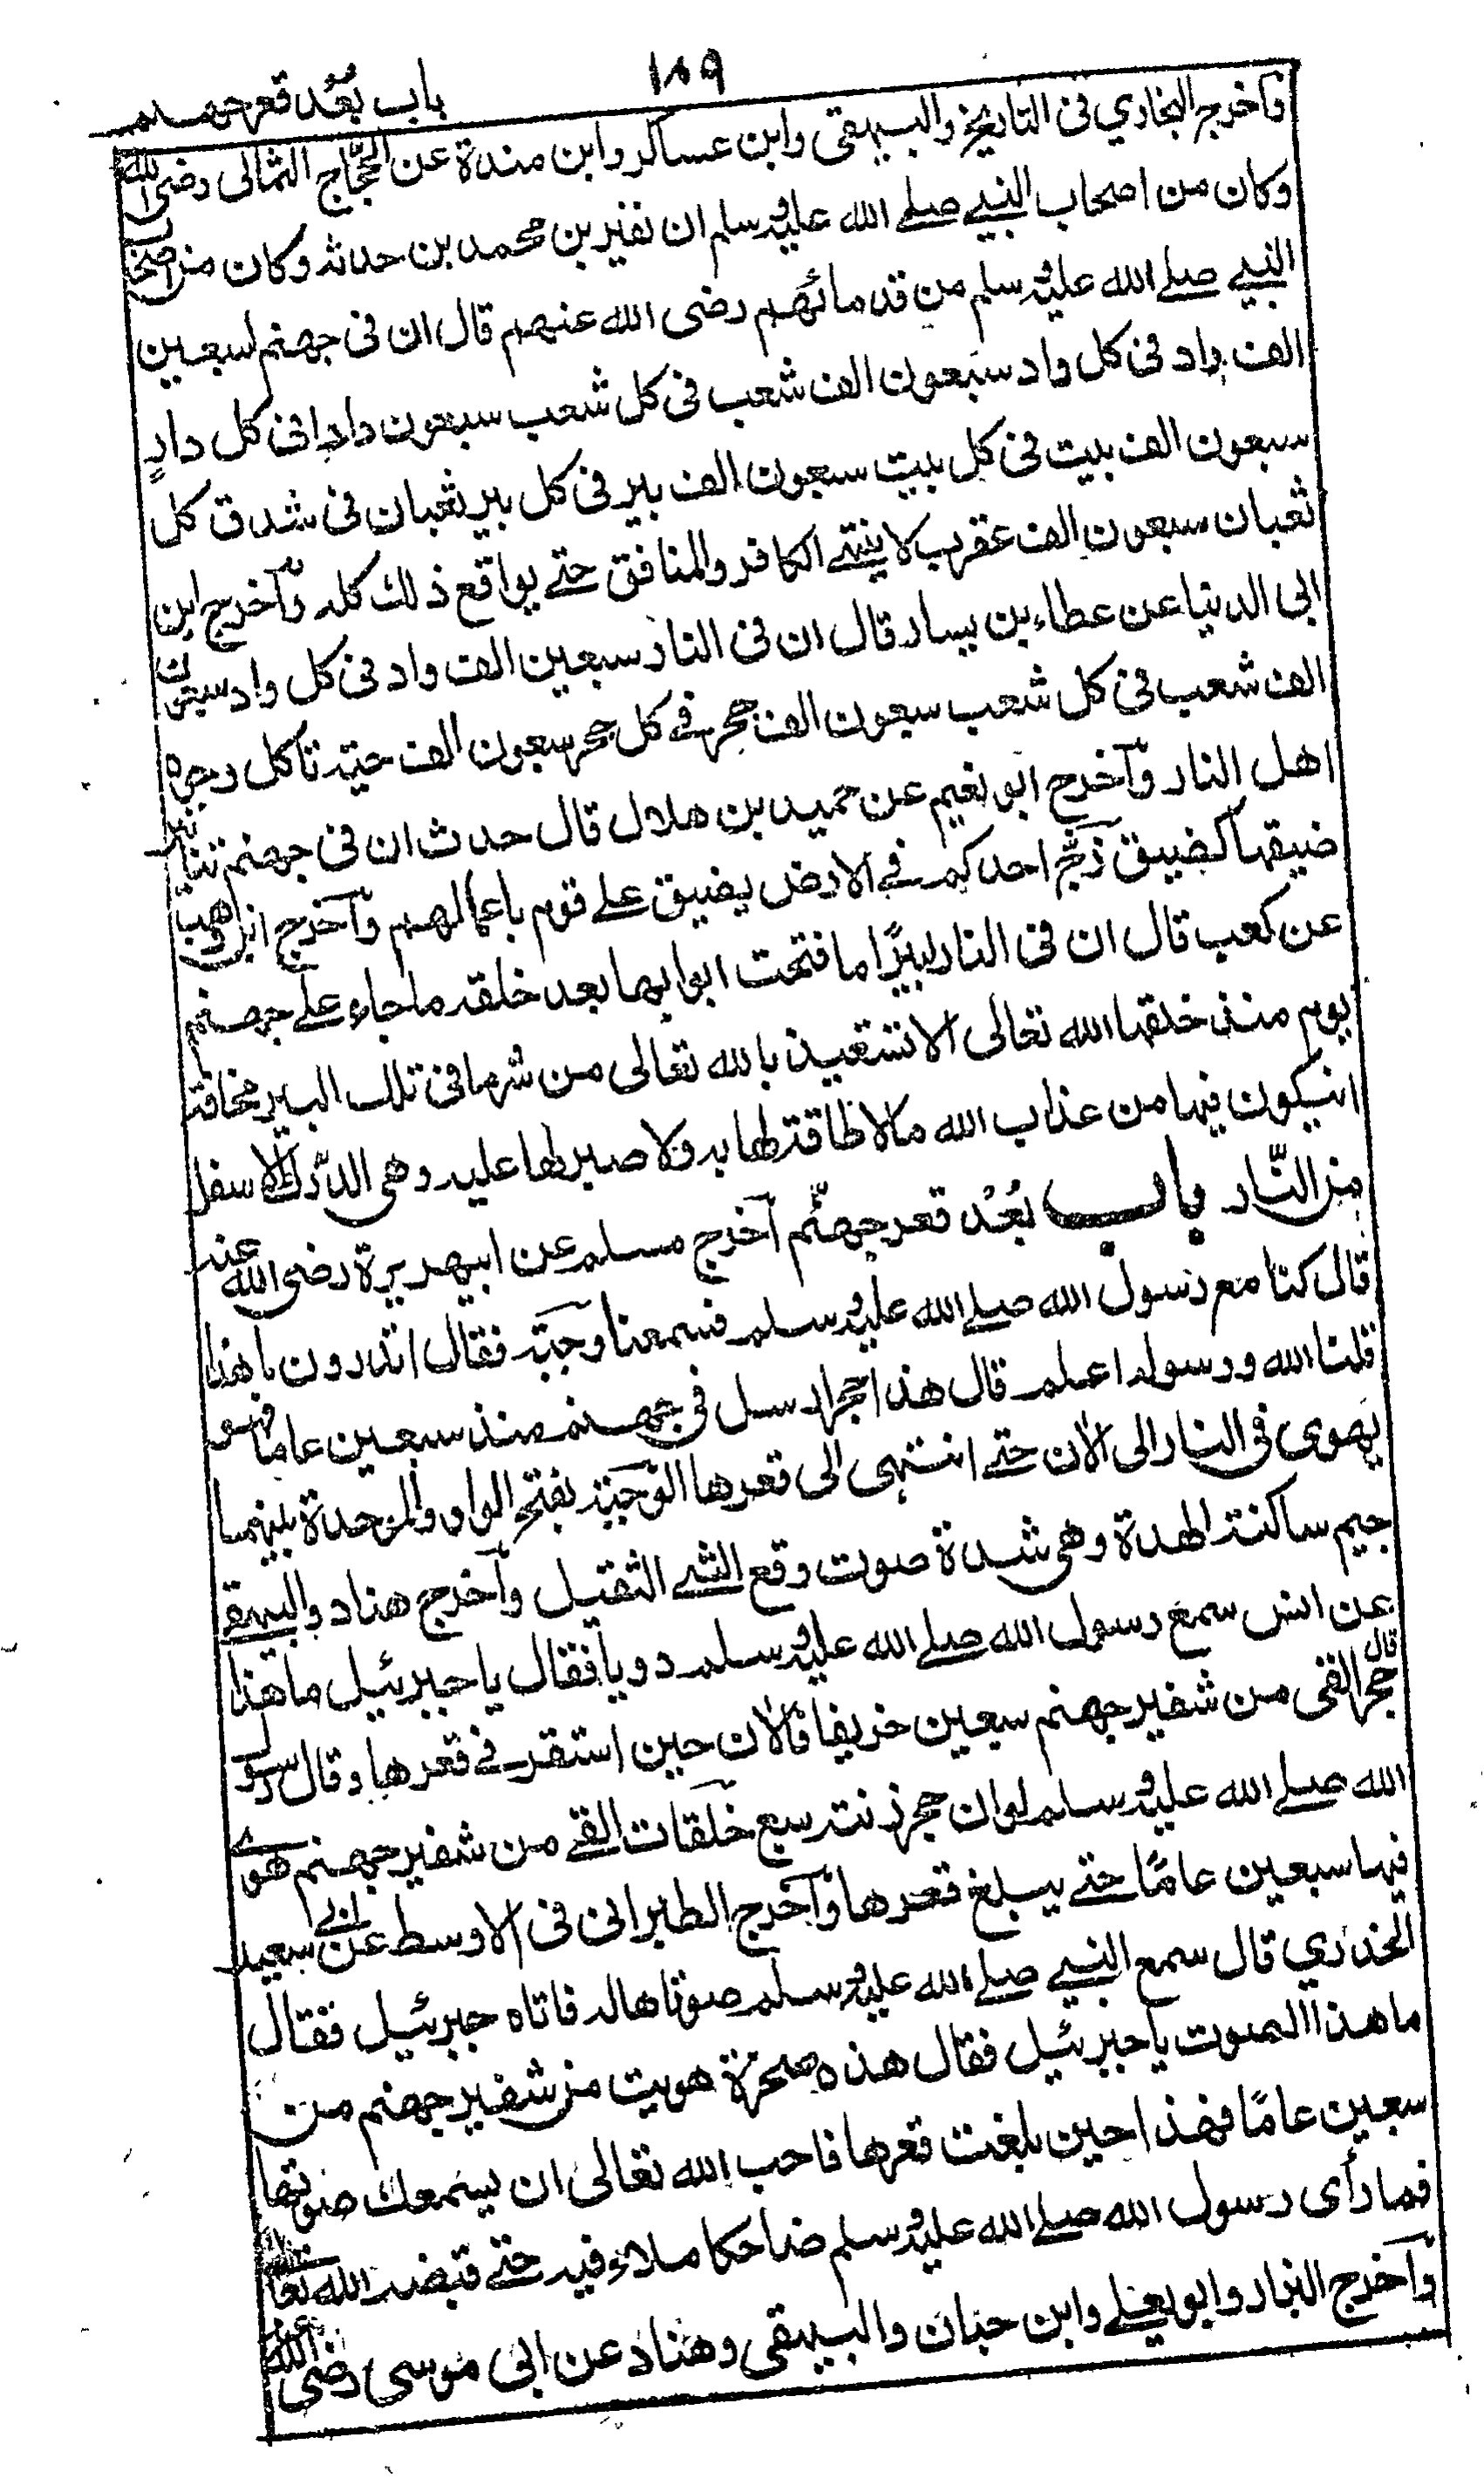 ١٨٩
باب بُعْد قعر جهنم
وآخرج البخاري فى التاريخ والبيهقى وابن عساكر وابن مندة عن الحجّاج الثمالى رضى الله
وكان من اصحاب النبي صلے الله عليه وسلم ان نفير بن محمد بن حدثه وكان من اصحاب
النبي صلے الله عليه وسلم من قدمائهم رضى الله عنهم قال ان فى جهنم لسبعين
الف واد فى كل واد سبعون الف شعب فى كل شعب سبعون دارا فى كل دارٍ
سبعون الف بيت فى كل بيت سبعون الف بير فى كل بير ثعبان فى شدق كل
ثعبان سبعون الف عقرب لا ينتهے الكافر والمنافق حتے يواقع ذلك كله وآخرج ابن
ابى الدنيا عن عطاء بن يسار قال ان فى النار سبعين الف واد فى كل واد سبعون
الف شعب فى كل شعب سبعون الف حجر فے كل حجر سبعون الف حية تاكل وجوه
اهل النار وآخرج ابو نعيم عن حميد بن هلال قال حدث ان فى جهنم تنانير
ضيقها كضيق زجّ احدكم فے الارض يضيق علے قوم باعمالهم وآخرج ابن وهب
عن كعب قال ان فى النار لبيرًا ما فتحت ابوابها بعد خلقه ما جاء علے جهنم
يوم منذ خلقها الله تعالى الا تستعيذ بالله تعالى من شر ما فى تلك البير مخافة
ان يكون فيها من عذاب الله ما لا طاقة لها به ولا صبر لها عليه وهى الدّرك الاسفل
من النّار باب بُعْد قعر جهنّم آخرج مسلم عن ابيهريرة رضى الله عنه
قال كنا مع رسول الله صلے الله عليه وسلم فسمعنا وجبة فقال اتدرون ما هذا
قلنا الله ورسوله اعلم قال هذا حجر ارسل فى جهنم منذ سبعين عاما فهو
يهوى فى النار الى الآن حتے انتهى الى قعرها الوجبة بفتح الواو والموحدة بينهما
جيم ساكنة الهدة وهى شدة صوت وقع الشے الثقيل وآخرج هناد والبيهقے
عن انس سمع رسول الله صلے الله عليه وسلم دويا فقال يا جبرئيل ما هذا
قال حجر القى من شفير جهنم سبعين خريفا فالآن حين استقر فے قعرها وقال رسول
الله صلے الله عليه وسلم لو ان حجر زنة سبع خلقات القے من شفير جهنم هوے
فيها سبعين عامًا حتے يبلغ قعرها وآخرج الطبرانى فى الاوسط عن ابے سعيد
الخدري قال سمع النبي صلے الله عليه وسلم صوتا هاله فاتاه جبرئيل فقال
ما هذا الصوت يا جبرئيل فقال هذه صخرة هويت من شفير جهنم من
سبعين عامًا فهذا حين بلغت قعرها فاحب الله تعالى ان يسمعك صوتها
فما رأى رسول الله صلے الله عليه وسلم ضاحكا ملاء فيه حتے قبضه الله تعالى
وآخرج البزار وابو يعلے وابن حبان والبيهقى وهناد عن ابى موسى رضى الله